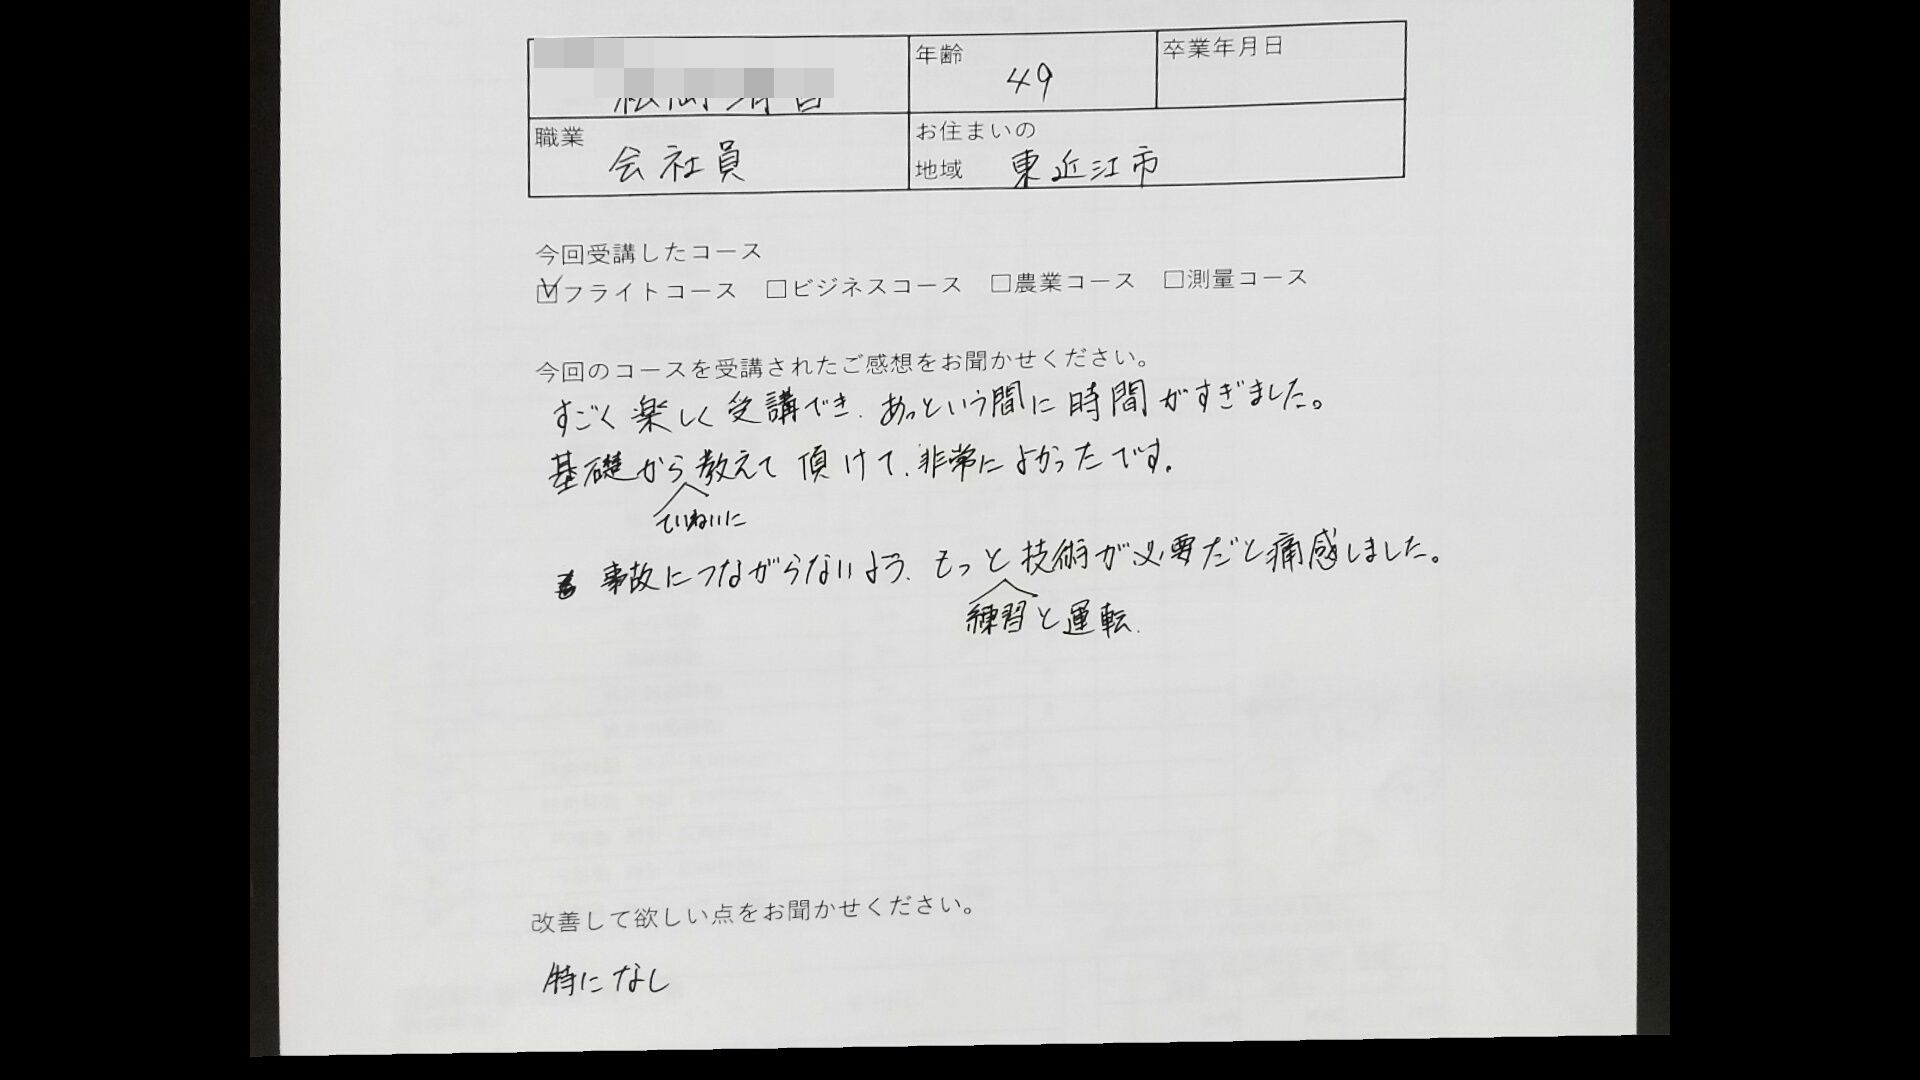 年齢 49 卒業年月日
職業 会社員
お住まいの
地域 東近江市
今回受講したコース
☑フライトコース □ビジネスコース □農業コース □測量コース
今回のコースを受講されたご感想をお聞かせください。
すごく楽しく受講でき、あっという間に時間がすぎました。
基礎から教えて頂けて、非常によかったです。
ていねいに
事故につながらないよう、もっと技術が必要だと痛感しました。
練習と運転
改善して欲しい点をお聞かせください。
特になし